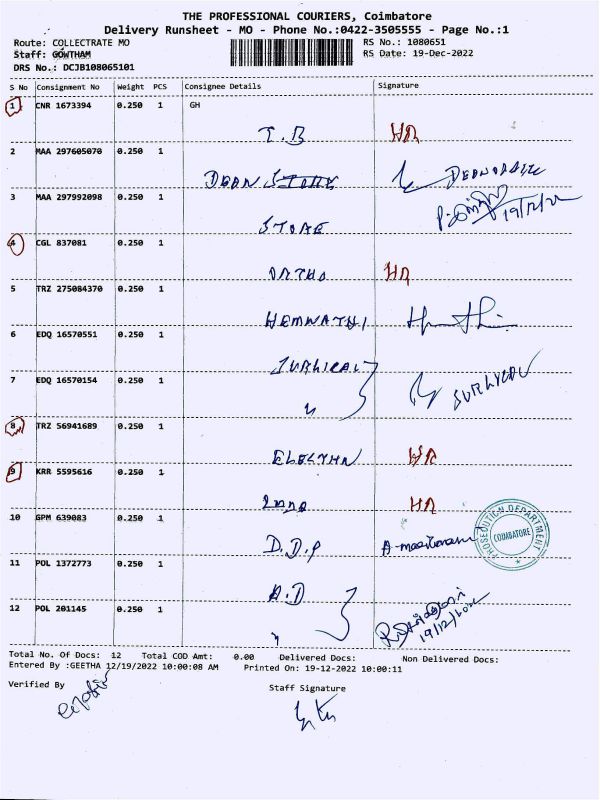 THE PROFESSIONAL COURIERS, Coimbatore
Delivery Runsheet - MO - Phone No.:0422-3505555 - Page No.:1
Route: COLLECTRATE MO RS No.: 1080651
Staff: GOWTHAM RS Date: 19-Dec-2022
DRS No.: DCJB108065101
S No Consignment No Weight PCS Consignee Details Signature
1 CNR 1673394 0.250 1 GH
T.B HR
2 MAA 297605070 0.250 1
DEAN
3 MAA 297992098 0.250 1
STORE 19/12/22
4 CGL 837081 0.250 1
ORTHO HR
5 TRZ 275084370 0.250 1
HEMWATHI
6 EDQ 16570551 0.250 1
SURGICAL
7 EDQ 16570154 0.250 1
8 TRZ 56941689 0.250 1
HR
9 KRR 5595616 0.250 1
HR
10 GPM 639083 0.250 1
D.D.P
PROSECUTION DEPARTMENT
COIMBATORE
11 POL 1372773 0.250 1
A.D
12 POL 201145 0.250 1
Total No. Of Docs: 12 Total COD Amt: 0.00 Delivered Docs: Non Delivered Docs:
Entered By :GEETHA 12/19/2022 10:00:08 AM Printed On: 19-12-2022 10:00:11
Verified By Staff Signature